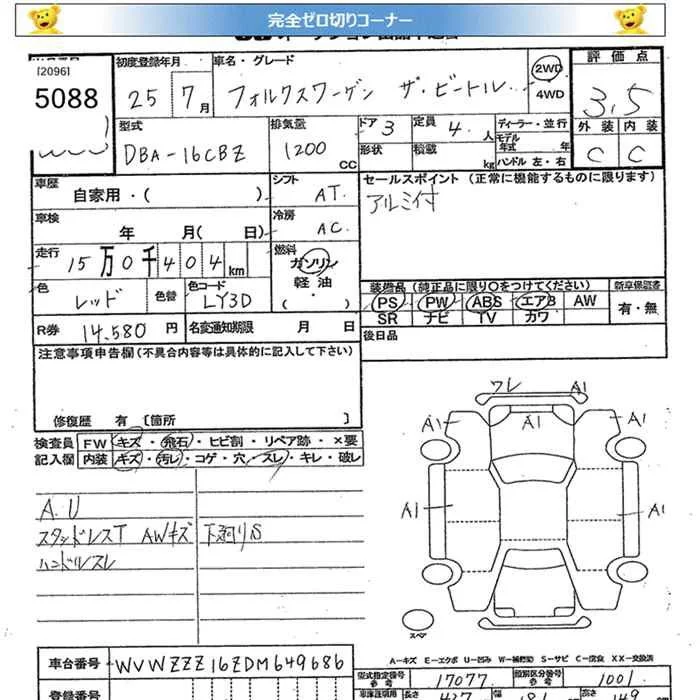 完全ゼロ切りコーナー
[2096]
5088
初度登録年月
25 7月
車名・グレード
フォルクスワーゲン ザ・ビートル
2WD
4WD
評価点
3.5
外装 内装
C C
型式
DBA-16CBZ
排気量
1200 CC
ドア 3
形状
定員 4 人
積載 kg
ディーラー・並行
モデル年式 年
ハンドル 左・右
車歴
自家用・( )
シフト
AT
セールスポイント(正常に機能するものに限ります)
アルミ付
車検
年 月( 日)
冷房
AC
走行
15万0千404km
燃料
ガソリン
軽油
( ・ )
色
レッド
色替
色コード
LY3D
装備品(純正品に限り〇をつけてください)
新車保証書
PS PW ABS エアB AW
SR ナビ TV カワ
有・無
R券
14,580円
名変通知期限 月 日
後日品
注意事項申告欄(不具合内容等は具体的に記入して下さい)
修復歴 有 [箇所 ]
検査員記入欄
FW キズ・飛石・ヒビ割・リペア跡・×要
内装 キズ・汚レ・コゲ・穴・スレ・キレ・破レ
A.U
スタッドレスT AWキズ 下廻りS
ハンドルスレ
ワレ A1
A1 A1
A1 A1
スペア
A-キズ E-エクボ U-凹み W-補修跡 S-サビ C-腐食 XX-交換済
車台番号
WVWZZZ16ZDM649686
型式指定番号
参考
17077
類別区分番号
参考
1001
登録番号
長さ
427
幅
181
高さ
149